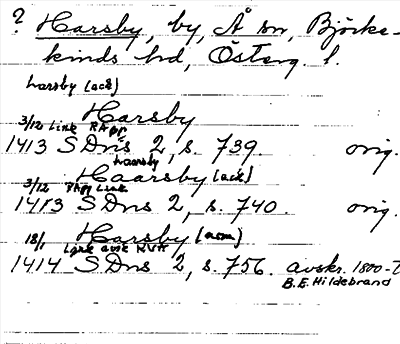 ? Harsby, by, Å sn, Björke-
kinds hd, Österg. l.
Harsby (ack)
Harsby
3/12 Link RApp
1413 SDns 2, s. 739. orig.
Harsby
Haarsby (ack)
3/12 RApp Link
1413 SDns 2, s. 740. orig.
Harsby (nom)
18/1 Link avskr RVH
1414 SDns 2, s. 756. avskr. 1800-t
B.E. Hildebrand